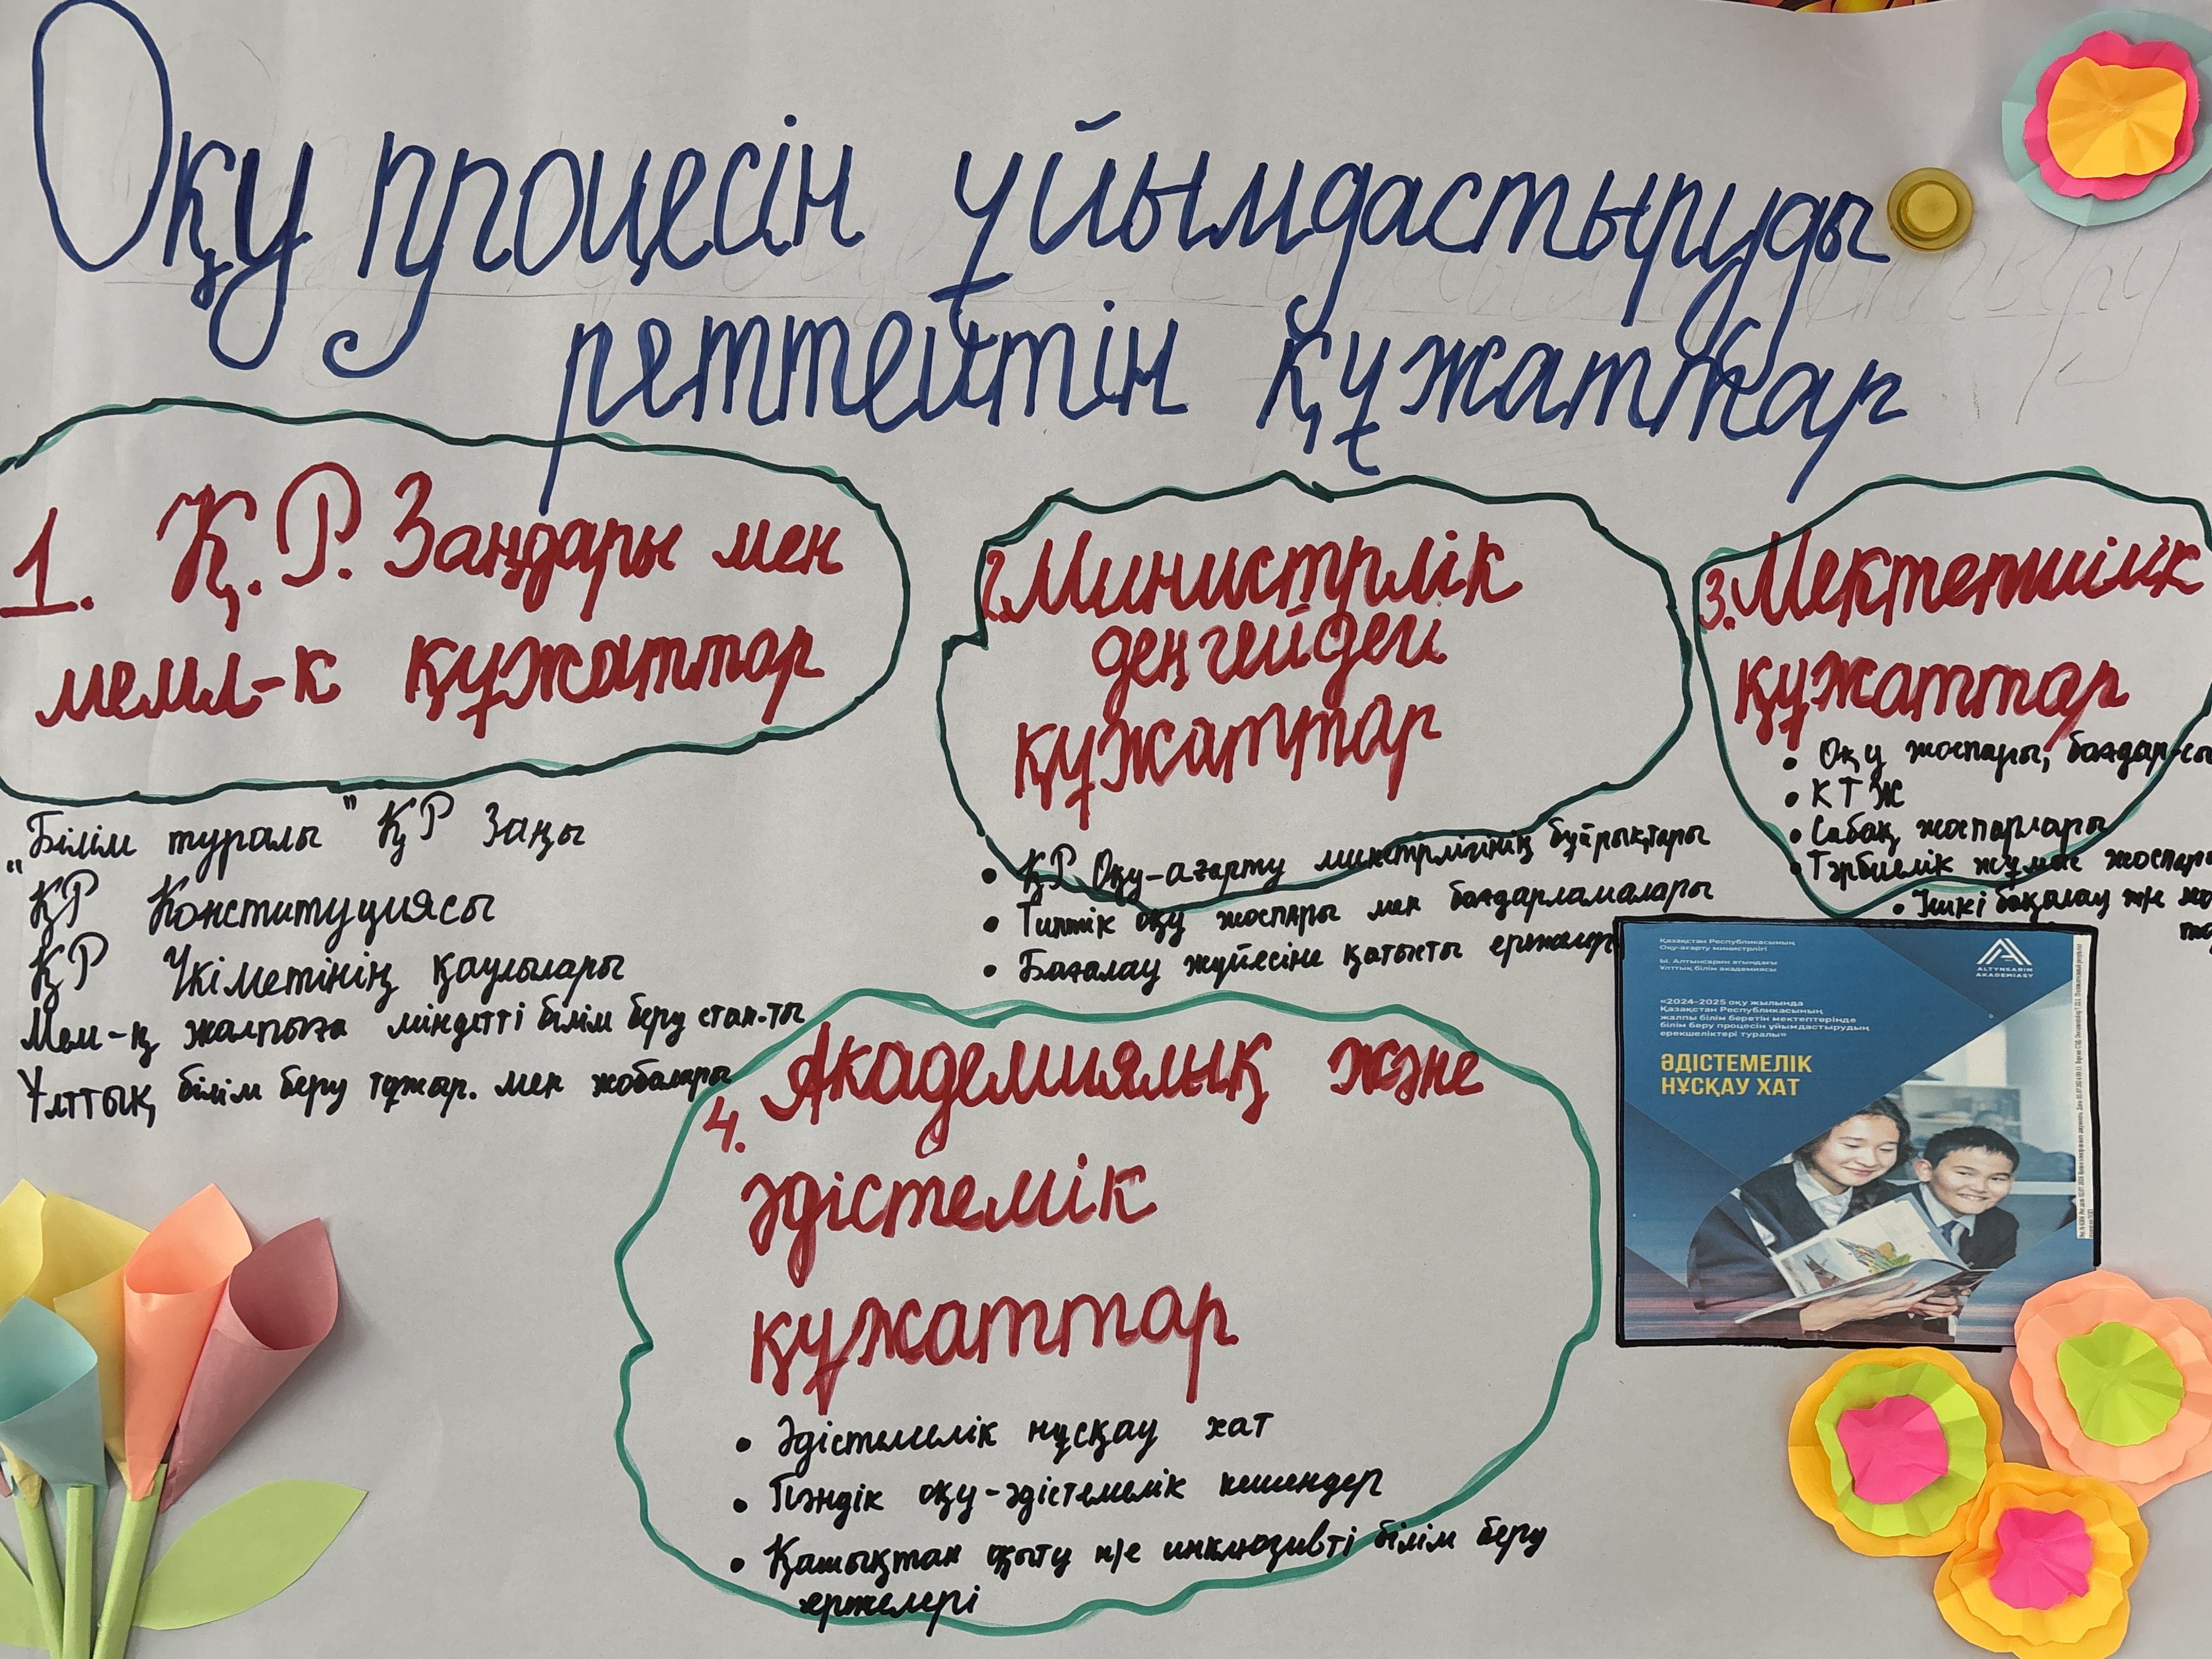 Оқу процесін ұйымдастыруды
реттейтін құжаттар
1. Қ.Р. Заңдары мен
мемл-к құжаттар
"Білім туралы" ҚР Заңы
ҚР Конституциясы
ҚР Үкіметінің қаулылары
Мем-қ жалпыға міндетті білім беру стан-ты
Ұлттық білім беру тұжыр. мен жобалары
2. Министрлік
деңгейдегі
құжаттар
• ҚР Оқу-ағарту министрлігінің бұйрықтары
• Типтік оқу жоспары мен бағдарламалары
• Бағалау жүйесіне қатысты ережелер
3. Мектепішілік
құжаттар
• Оқу жоспары, бағдар-сы
• КТЖ
• Сабақ жоспарлары
• Тәрбиелік жұмыс
• Ішкі бақылау ж/е
4. Академиялық және
әдістемік
құжаттар
• Әдістемелік нұсқау хат
• Пәндік оқу-әдістемелік кешендер
• Қашықтан оқыту ж/е инклюзивті білім беру
ережелері
Қазақстан Республикасының
Оқу-ағарту министрлігі
Ы. Алтынсарин атындағы
Ұлттық білім академиясы
ALTYNSARIN
AKADEMIASY
«2024-2025 оқу жылында
Қазақстан Республикасының
жалпы білім беретін мектептерінде
білім беру процесін ұйымдастырудың
ерекшеліктері туралы»
ӘДІСТЕМЕЛІК
НҰСҚАУ ХАТ